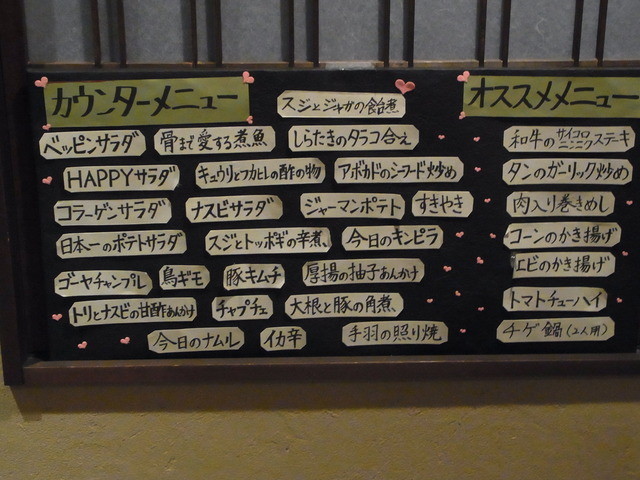 カウンターメニュー
スジとジャガの飴煮
オススメメニュー
ベッピンサラダ 骨まで愛する煮魚 しらたきのタラコ合え
HAPPYサラダ キュウリとフカヒレの酢の物 アボカドのシーフード炒め
コラーゲンサラダ ナスビサラダ ジャーマンポテト すきやき
日本一のポテトサラダ スジとトッポギの辛煮、 今日のキンピラ
ゴーヤチャンプル 鳥ギモ 豚キムチ 厚揚の柚子あんかけ
トリとナスビの甘酢あんかけ チャプチェ 大根と豚の角煮、
今日のナムル イカ辛 手羽の照り焼
和牛のサイコロニンニクステーキ
タンのガーリック炒め
肉入り巻きめし
コーンのかき揚げ
エビのかき揚げ
トマトチューハイ
チゲ鍋(2人用)